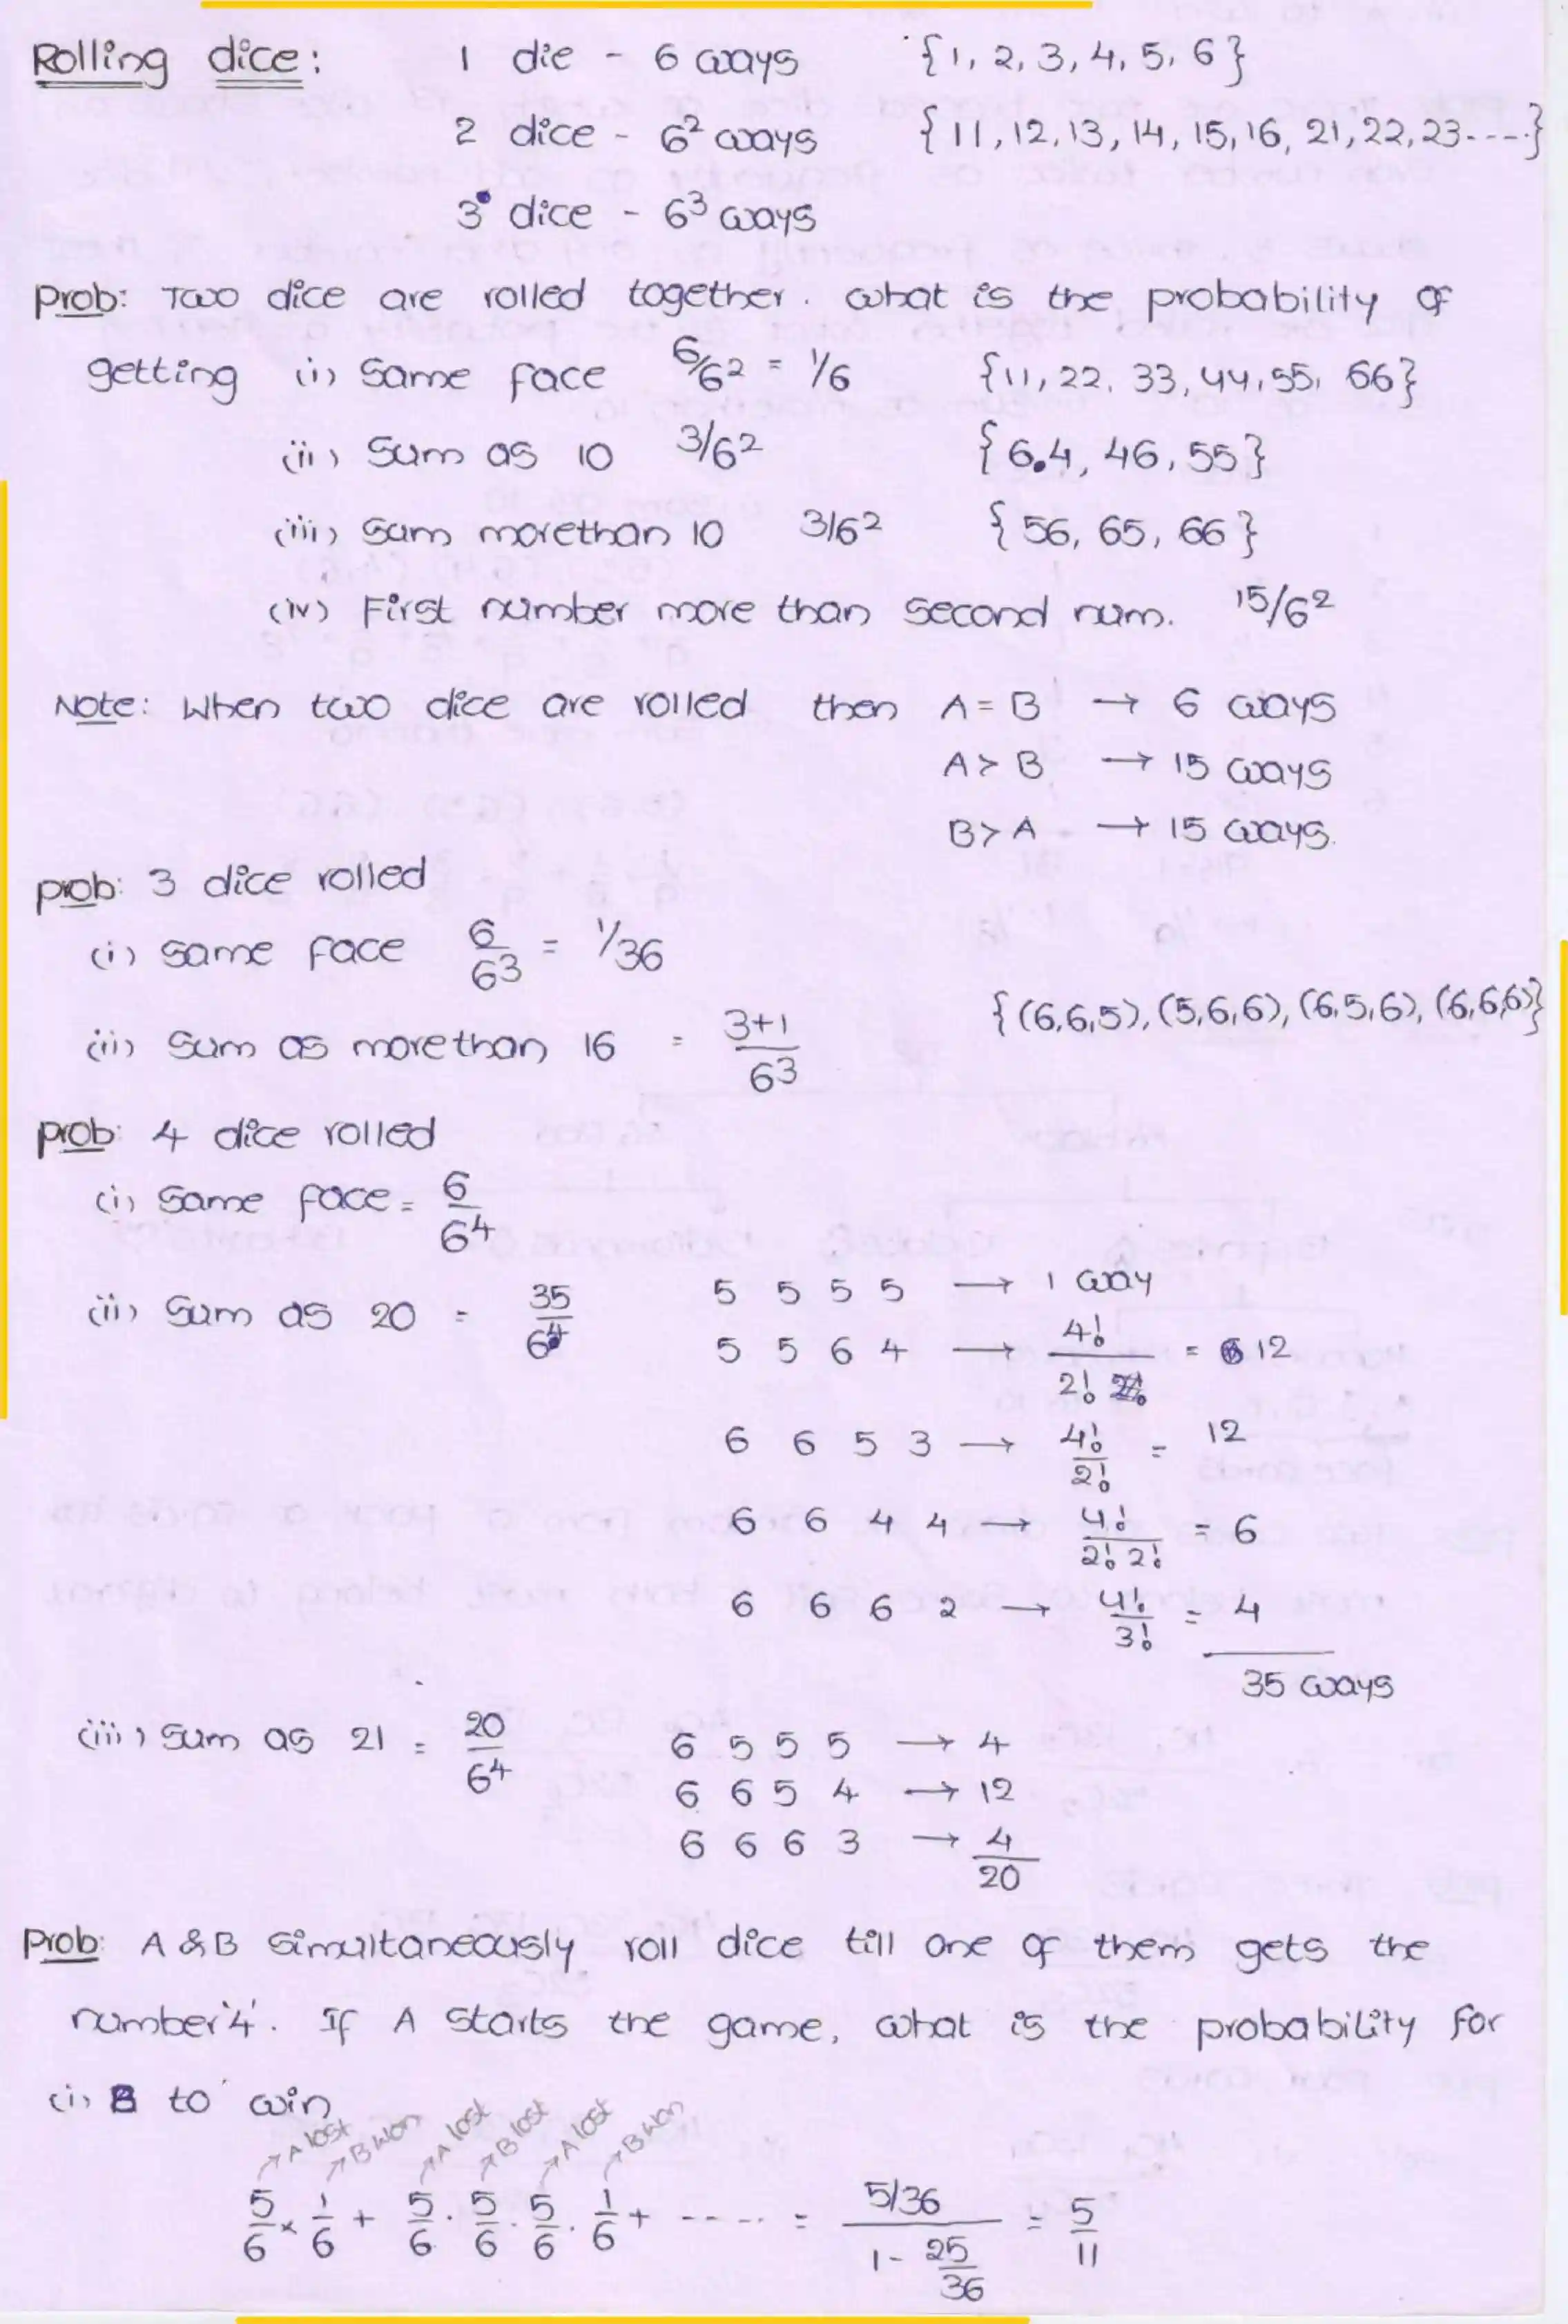 Rolling dice: 1 die - 6 ways {1, 2, 3, 4, 5, 6}
2 dice - 6² ways {11, 12, 13, 14, 15, 16, 21, 22, 23----}
3 dice - 6³ ways
Prob: Two dice are rolled together. What is the probability of
getting (i) Same face 6/6² = 1/6 {11, 22, 33, 44, 55, 66}
(ii) Sum as 10 3/6² {6,4, 46, 55}
(iii) Sum morethan 10 3/6² {56, 65, 66}
(iv) First number more than second num. 15/6²
Note: When two dice are rolled then A = B → 6 ways
A > B → 15 ways
B > A → 15 ways.
prob: 3 dice rolled
(i) same face 6/6³ = 1/36
{(6,6,5), (5,6,6), (6,5,6), (6,6,6)}
(ii) Sum as morethan 16 = (3+1)/6³
prob: 4 dice rolled
(i) Same face = 6/6⁴
(ii) Sum as 20 = 35/6⁴ 5 5 5 5 → 1 way
5 5 6 4 → 4!/2! = 12
6 6 5 3 → 4!/2! = 12
6 6 4 4 → 4!/(2! 2!) = 6
6 6 6 2 → 4!/3! = 4
35 ways
(iii) Sum as 21 = 20/6⁴ 6 5 5 5 → 4
6 6 5 4 → 12
6 6 6 3 → 4
20
Prob: A & B Simultaneously roll dice till one of them gets the
number '4'. If A starts the game, what is the probability for
(i) B to win
→ A lost → B won → A lost → B lost → A lost → B won
5/6 × 1/6 + 5/6 . 5/6 . 5/6 . 1/6 + ----- = (5/36)/(1 - 25/36) = 5/11